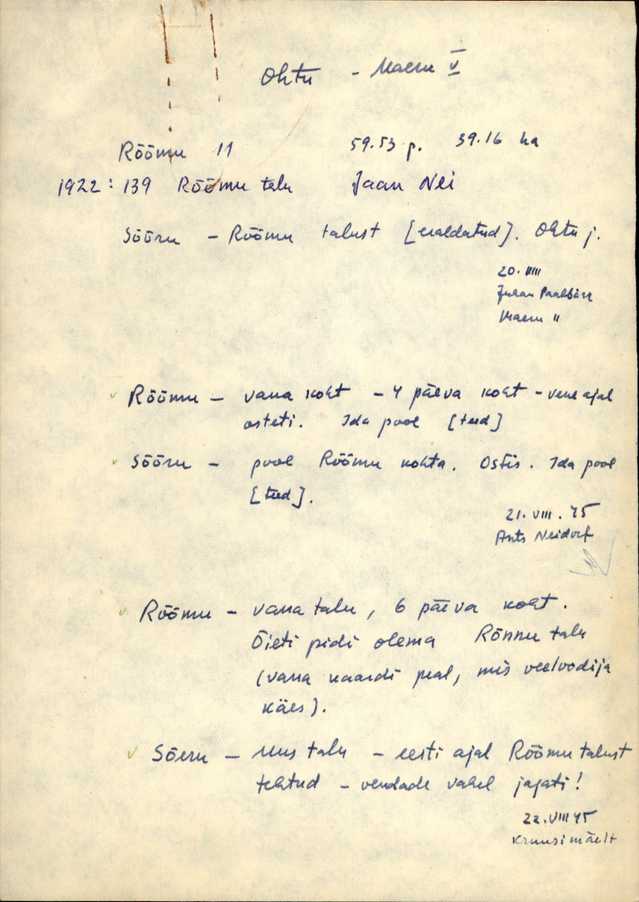 Ohtu - Maeru V
Rõõmu 11 59.53 p. 39.16 ha
1922: 139 Rõõmu talu Jaan Nei
Sõõru - Rõõmu talust [eraldatud]. Ohtu j.
20. VIII
Juhan
Maeru "
Rõõmu - vana koht - 4 päeva koht - vene ajal
osteti. Ida pool [teed]
Sõõru - pool Rõõmu kohta. Ostis. Ida pool
[teed].
21. VIII. 45
Ants Neidorf
Rõõmu - vana talu, 6 päeva koht.
Õieti pidi olema Rõnnu talu
(vana kaardi peal, mis veel vodija
käes).
Sõeru - uus talu - eesti ajal Rõõmu talust
tehtud - vendade vahel jagati!
22. VIII 45
Kruusimäelt